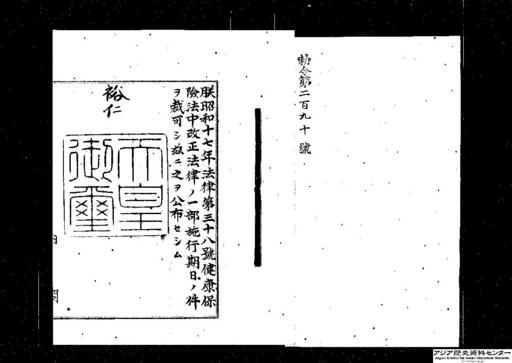 勅令第二百九十號
朕昭和十七年法律第三十八號健康保
險法中改正法律ノ一部施行期日ノ件
ヲ裁可シ玆ニ之ヲ公布セシム
裕仁
天皇
御璽
内
閣
アジア歴史資料センター
Japan Center for Asian Historical Records